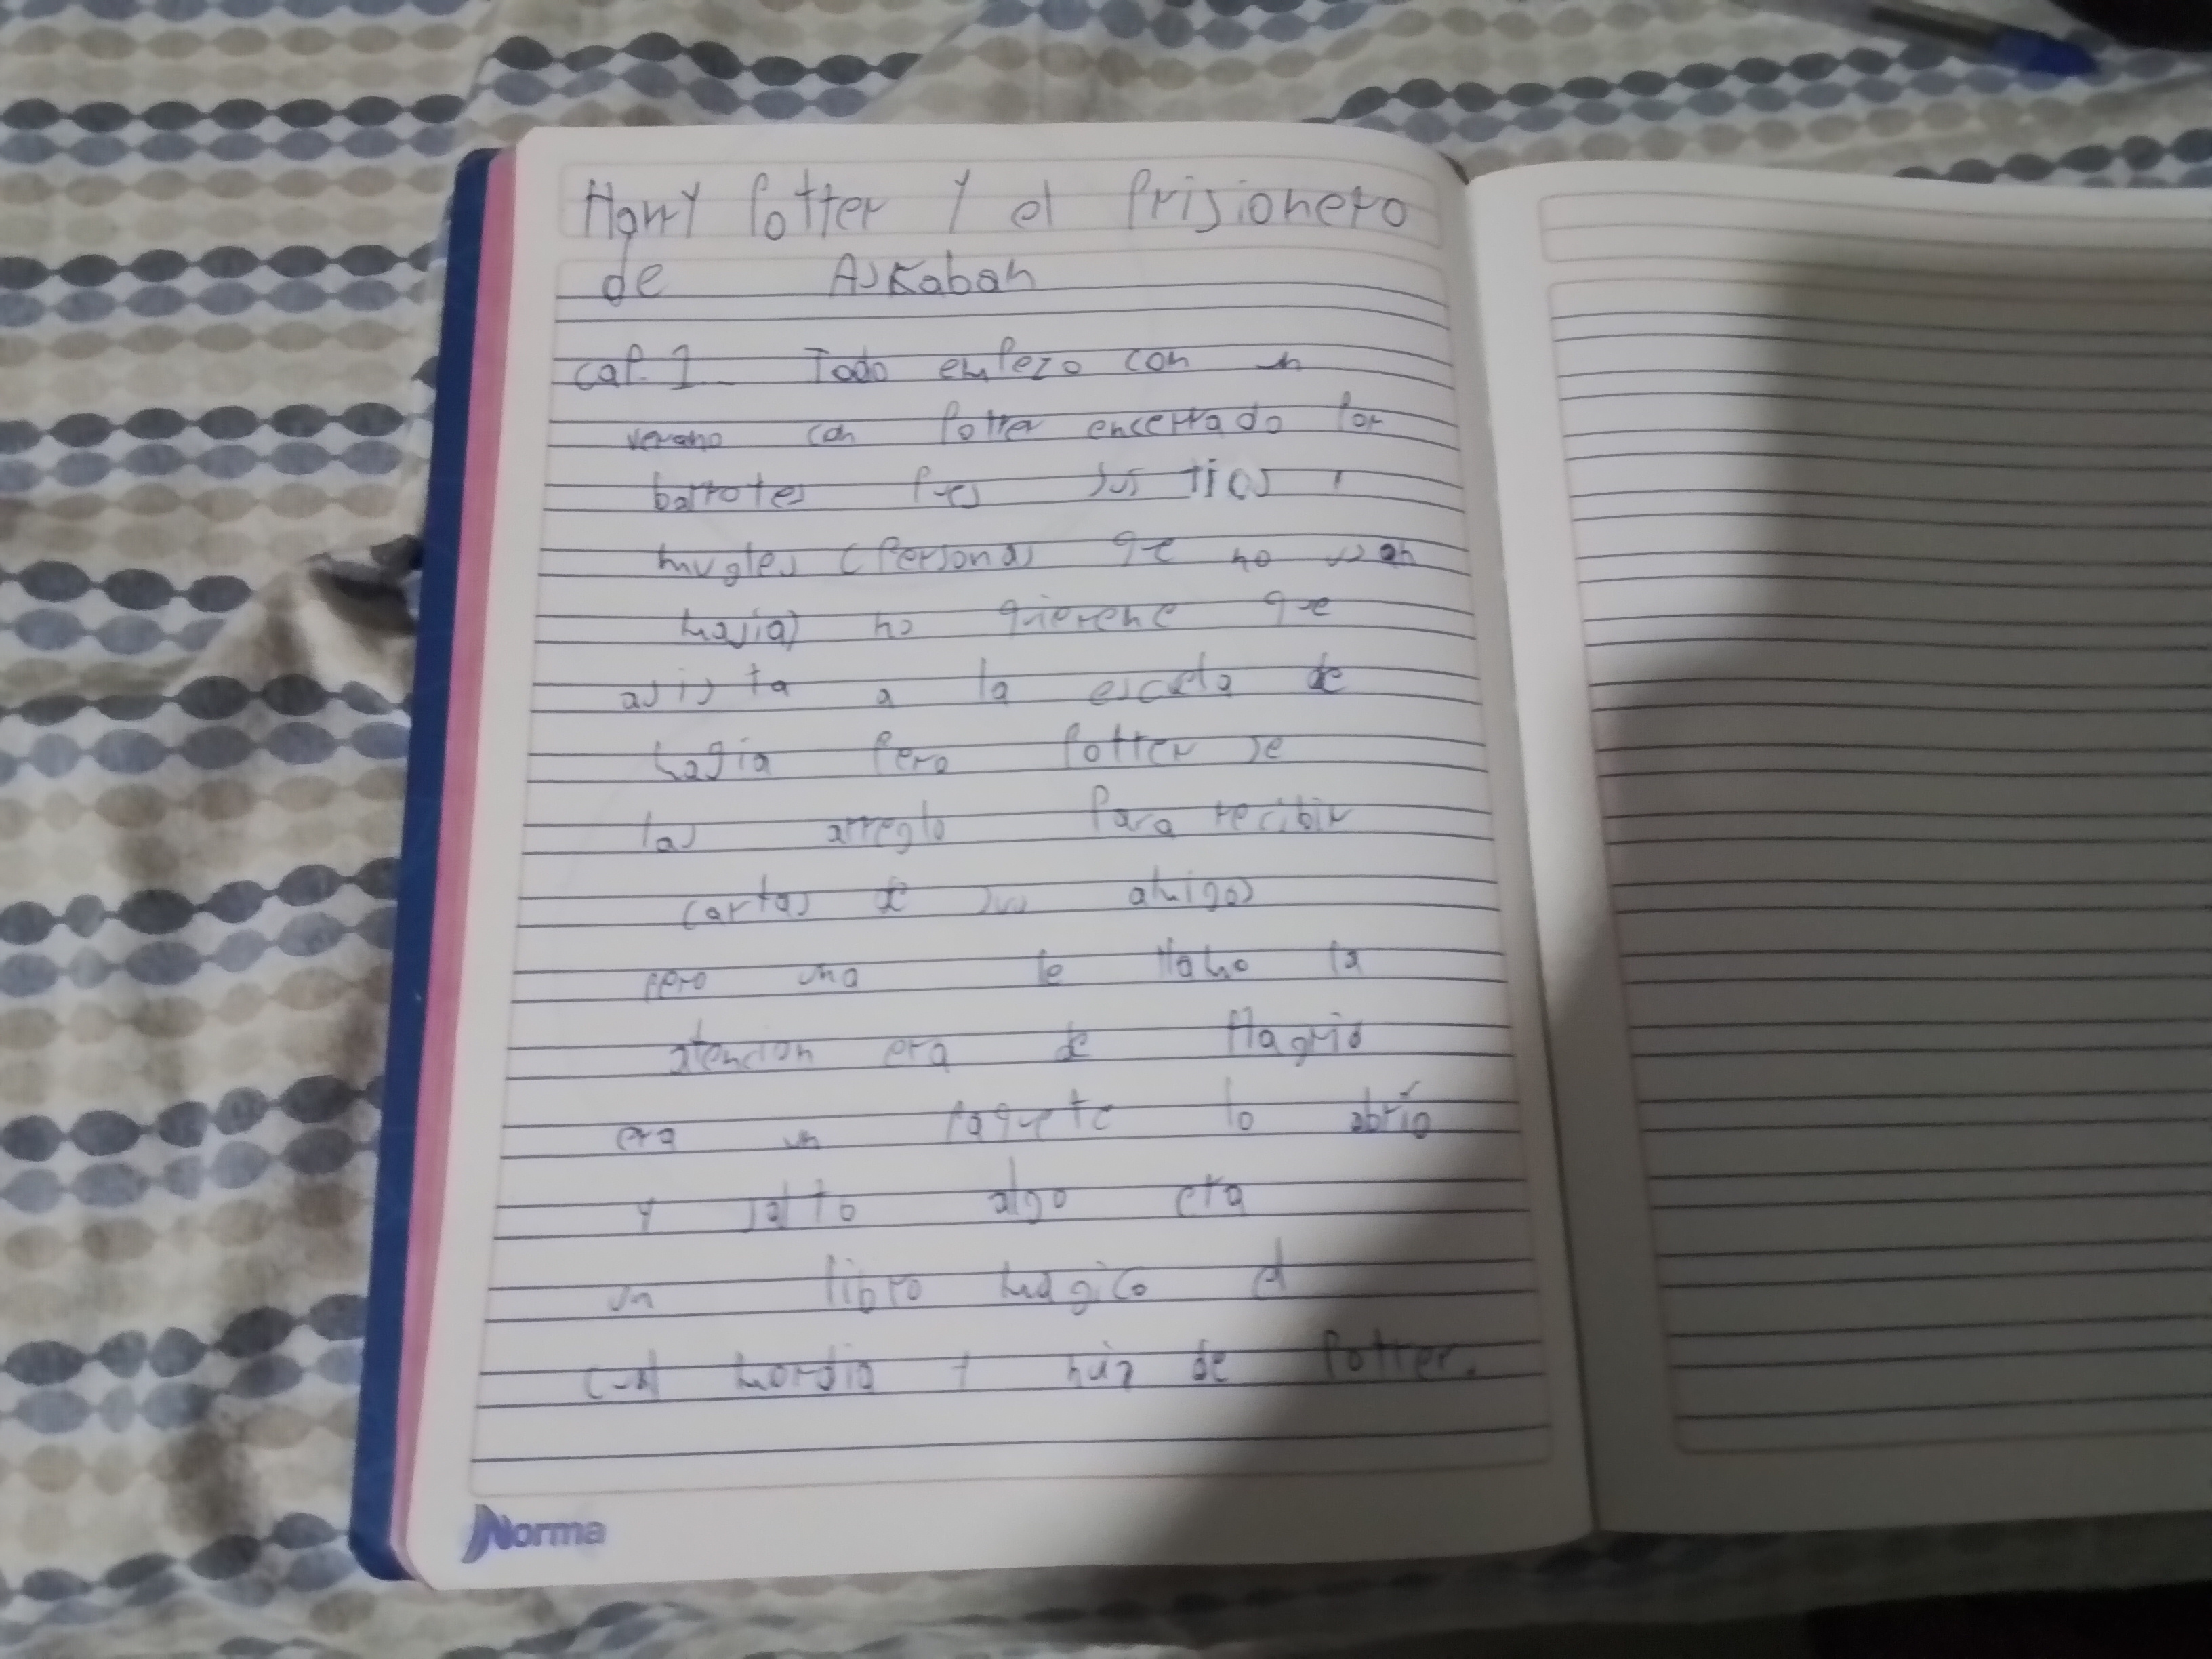 Harry Potter y el Prisionero
de Askaban
cap. 1 Todo empezo con un
verano con Potter encerrado por
barrotes pues sus tios
mugles (personas que no usan
majia) no quierene que
asista a la escuela de
magia pero Potter se
las arreglo para recibir
cartas de sus amigos
pero una le llamo la
atencion era de Hagrid
era un paquete lo abrío
y salto algo era
un libro magico el
cual mordio nariz de Potter.
Norma